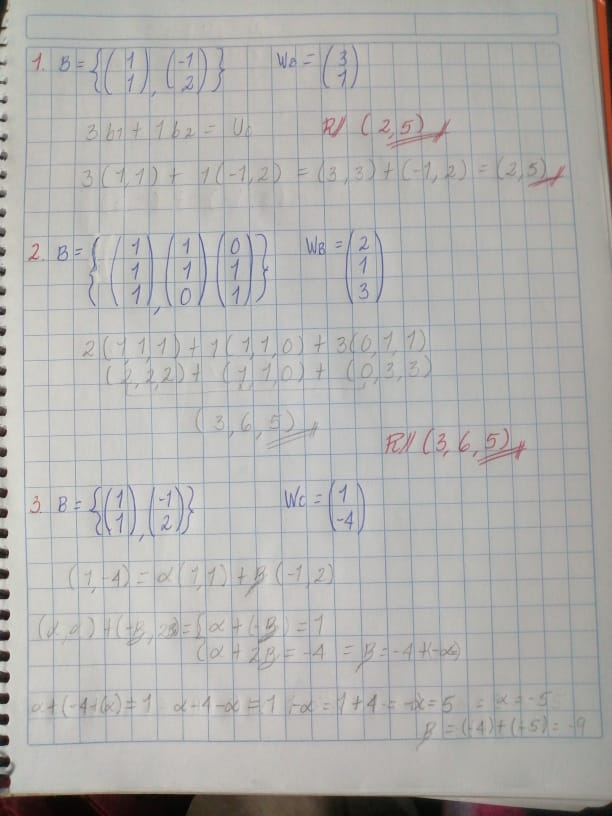 1. B = {(1 1), (-1 2)} WB = (3 1)
3b1 + 1b2 = Uc R// (2,5)
3(1,1) + 1(-1,2) = (3,3) + (-1,2) = (2,5)
2. B = {(1 1 1), (1 1 0) (0 1 1)} WB = (2 1 3)
2(1,1,1) + 1(1,1,0) + 3(0,1,1)
(2,2,2) + (1,1,0) + (0,3,3)
(3,6,5)
R// (3,6,5)
3. B = {(1 1), (-1 2)} Wc = (1 -4)
(1,-4) = α(1,1) + β(-1,2)
(α,α) + (-β,2β) = {α + (-β) = 1
(α + 2β = -4 = β = -4+(-α)
α+(-4+(α) = 1 α-4-α = 1 -α = 1+4 = -α = 5 = α = -5
β = (-4)+(-5) = -9